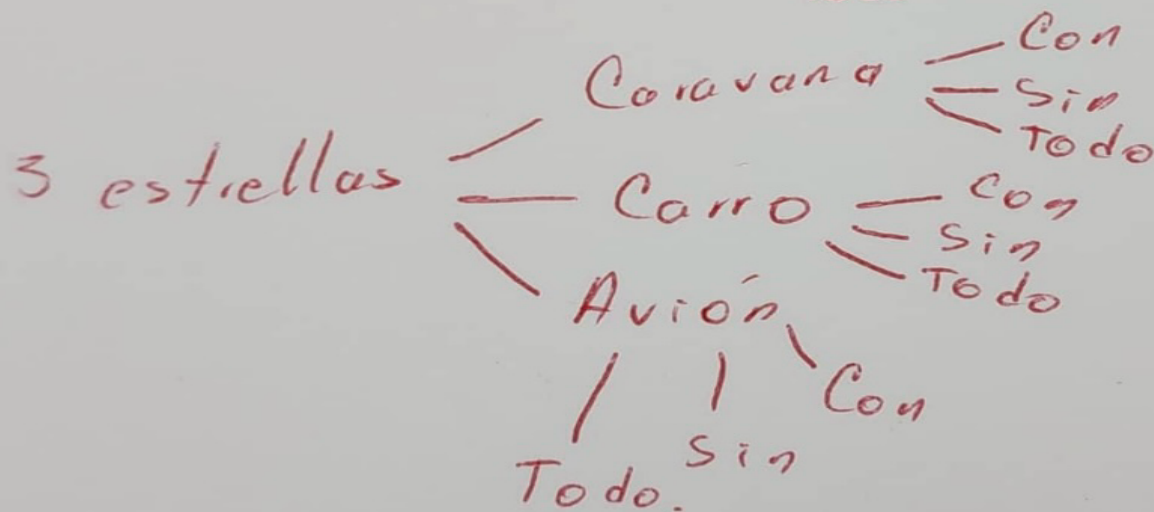 3 estrellas
Caravana
Con
Sin
Todo
Carro
Con
Sin
Todo
Avión
Con
Sin
Todo.